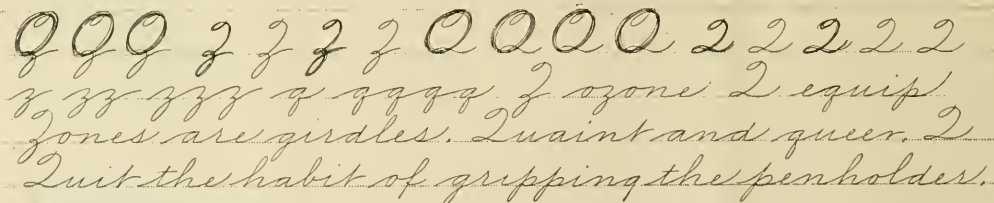 Q Q Q Z Z Z Z Q Q Q Q Q Q Q Q Q
z zz zzz q qqqq Z ozone Q equip
Zones are girdles. Quaint and queer. Q
Quit the habit of gripping the penholder.